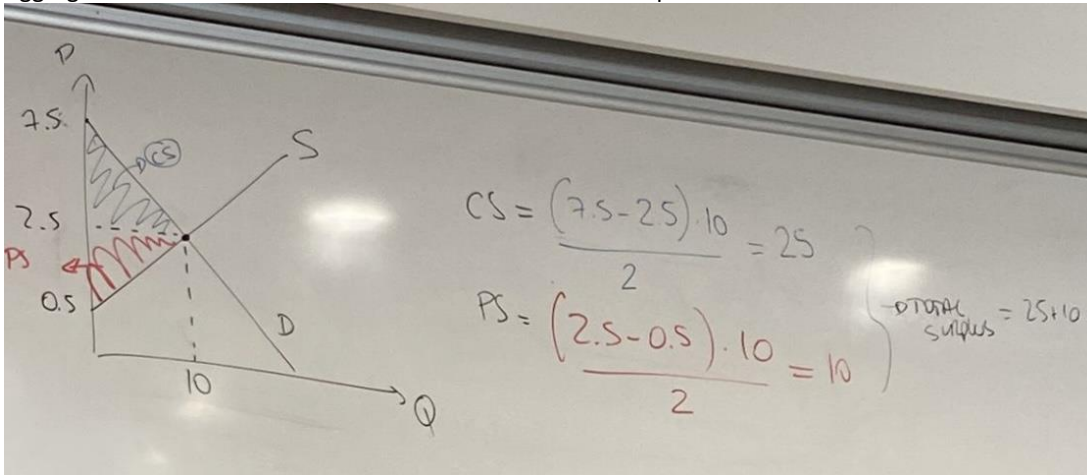 P
7.5
CS
S
2.5
PS
0.5
D
10
Q
CS = (7.5-2.5).10 / 2 = 25
PS = (2.5-0.5).10 / 2 = 10
TOTAL surplus = 25+10